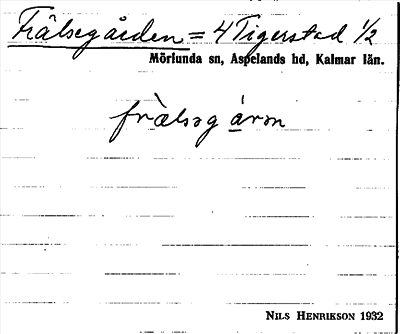 Frälsegården = 4 Tigerstad ½
Mörlunda sn, Aspelands hd, Kalmar län.
frælsɘgårɘn
NILS HENRIKSON 1932